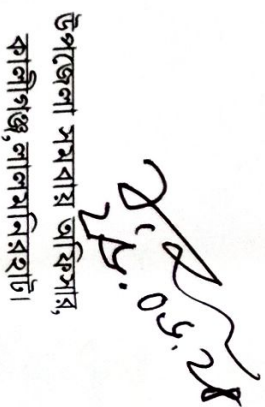 উপজেলা সমবায় অফিসার,
কালীগঞ্জ,লালমনিরহাট।